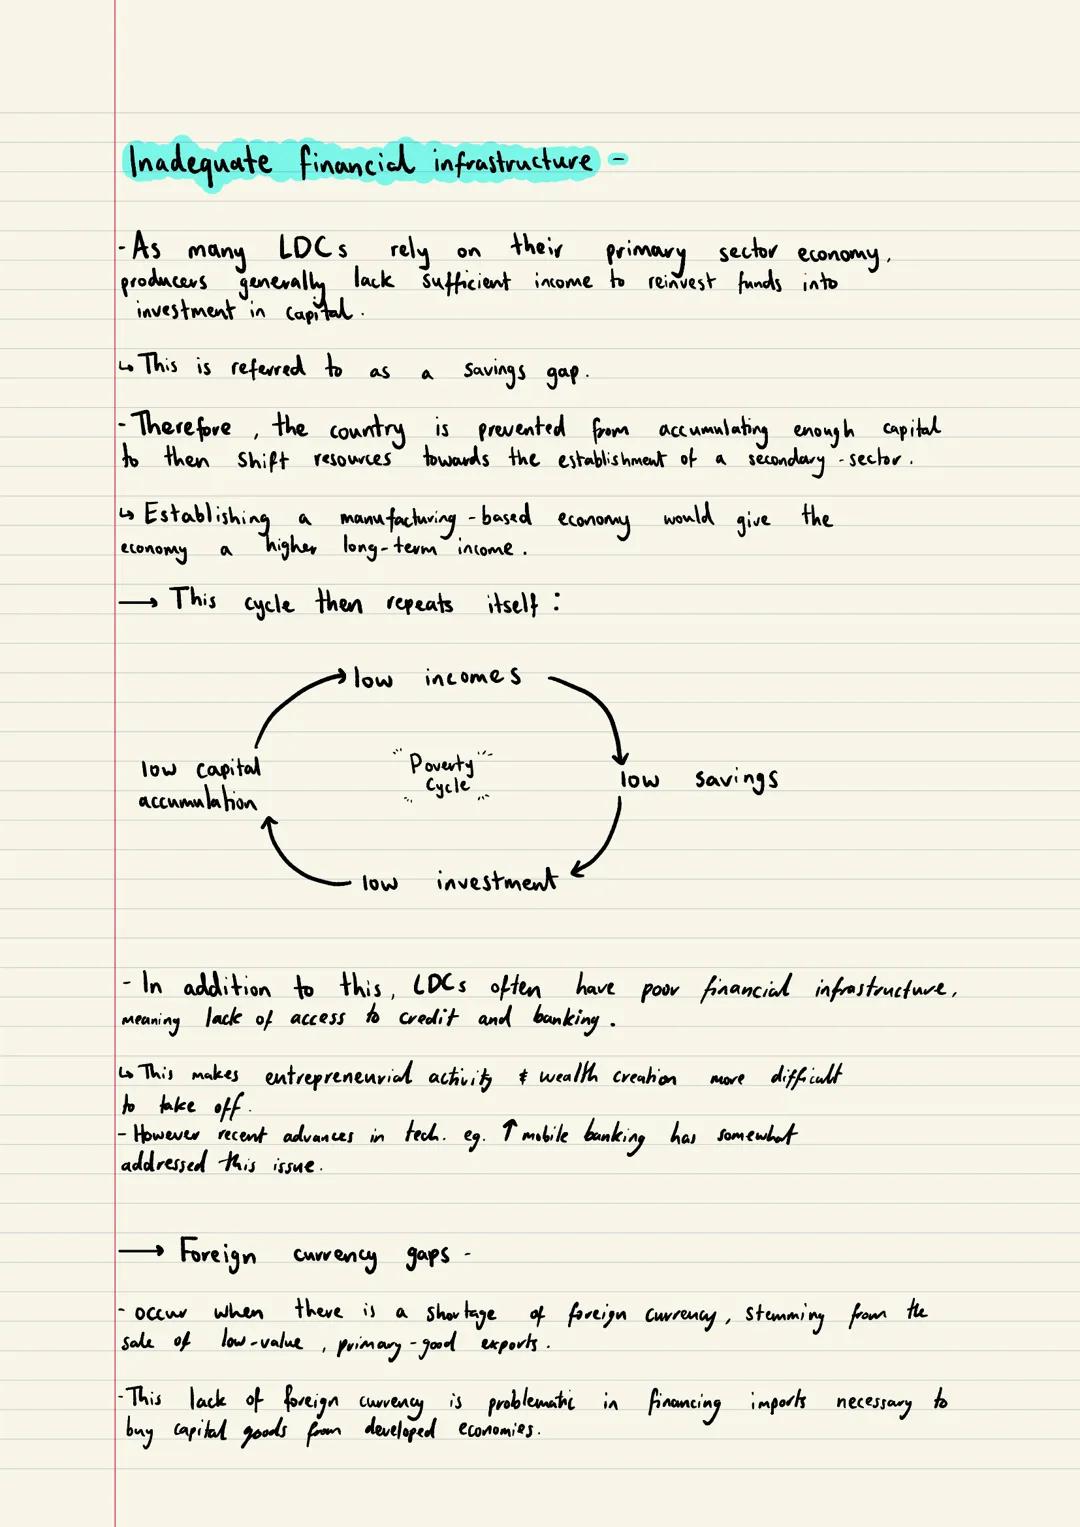 Inadequate financial infrastructure -
- As many LDCs rely on their primary sector economy,
producers generally lack sufficient income to reinvest funds into
investment in capital.
↳ This is referred to as a savings gap.
- Therefore, the country is prevented from accumulating enough capital
to then shift resources towards the establishment of a secondary-sector.
↳ Establishing a manufacturing-based economy would give the
economy a higher long-term income.
→ This cycle then repeats itself:
low incomes
low capital
accumulation
Poverty
Cycle
low savings
low investment
- In addition to this, LDCs often have poor financial infrastructure,
meaning lack of access to credit and banking.
↳ This makes entrepreneurial activity & wealth creation more difficult
to take off.
- However recent advances in tech. eg. ↑ mobile banking has somewhat
addressed this issue.
→ Foreign currency gaps -
- occur when there is a shortage of foreign currency, stemming from the
sale of low-value, primary-good exports.
- This lack of foreign currency is problematic in financing imports necessary to
buy capital goods from developed economies.